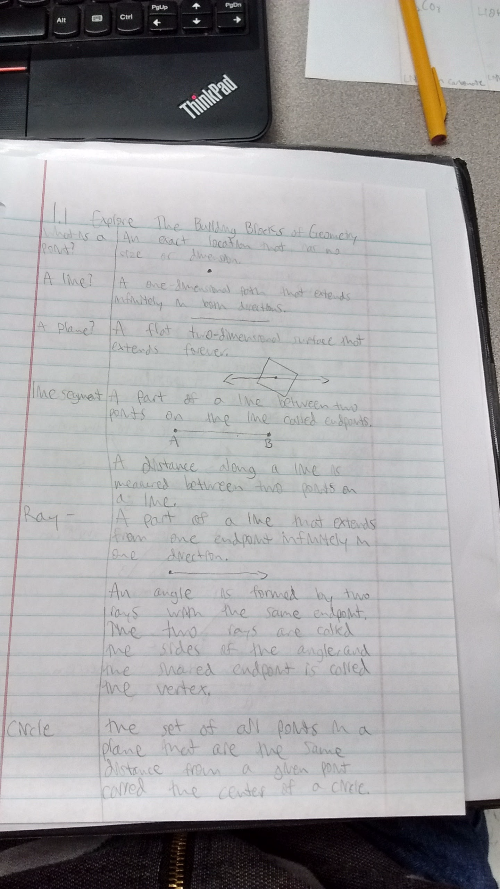 PgUp
PgDn
Alt
Ctrl
ThinkPad
CO3
1.1 Explore The Building Blocks of Geometry
What is a point? An exact location that has no
size or dimension
A line? A one-dimensional path that extends
infinitely in both directions.
A plane? A flat two-dimensional surface that
extends forever.
line segment A part of a line between two
points on the line called endpoints.
A B
A distance along a line is
measured between two points on
a line.
Ray - A part of a line that extends
from one endpoint infinitely in
one direction.
An angle is formed by two
rays with the same endpoint.
The two rays are called
the sides of the angle and
the shared endpoint is called
the vertex.
Circle the set of all points in a
plane that are the same
distance from a given point
called the center of a circle.